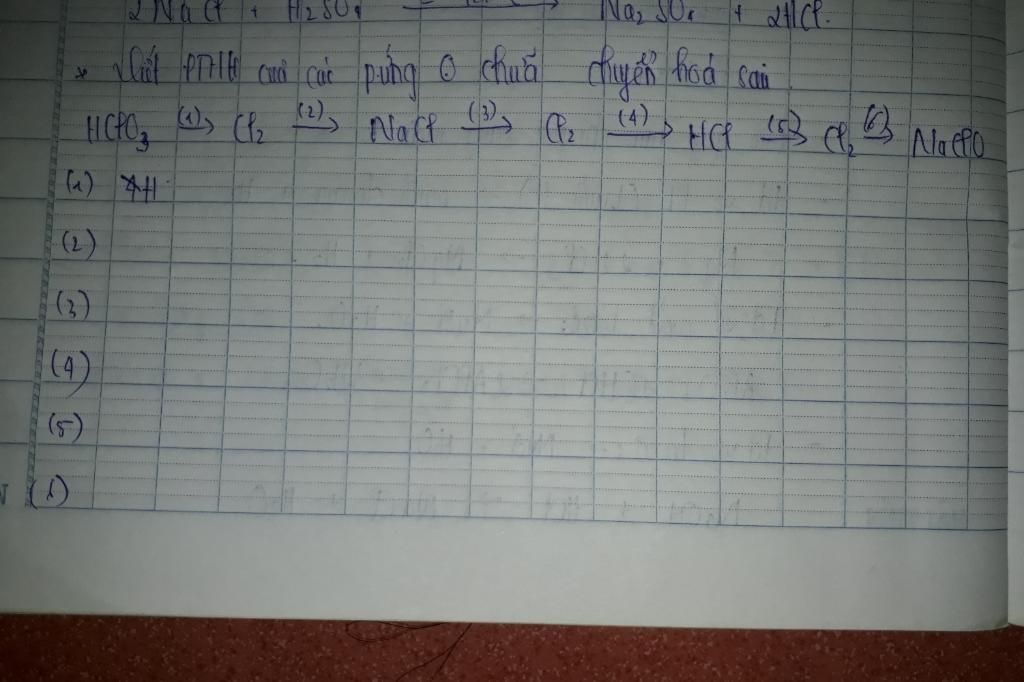 2NaCl + H₂SO₄ → Na₂SO₄ + 2HCl.
* Viết PTHH của các pứng ⊙ chuỗi chuyển hoá sau
HClO₃ (1)→ Cl₂ (2)→ NaCl (3)→ Cl₂ (4)→ HCl (5)→ Cl₂ (6)→ NaClO
(1)
(2)
(3)
(4)
(5)
(1)